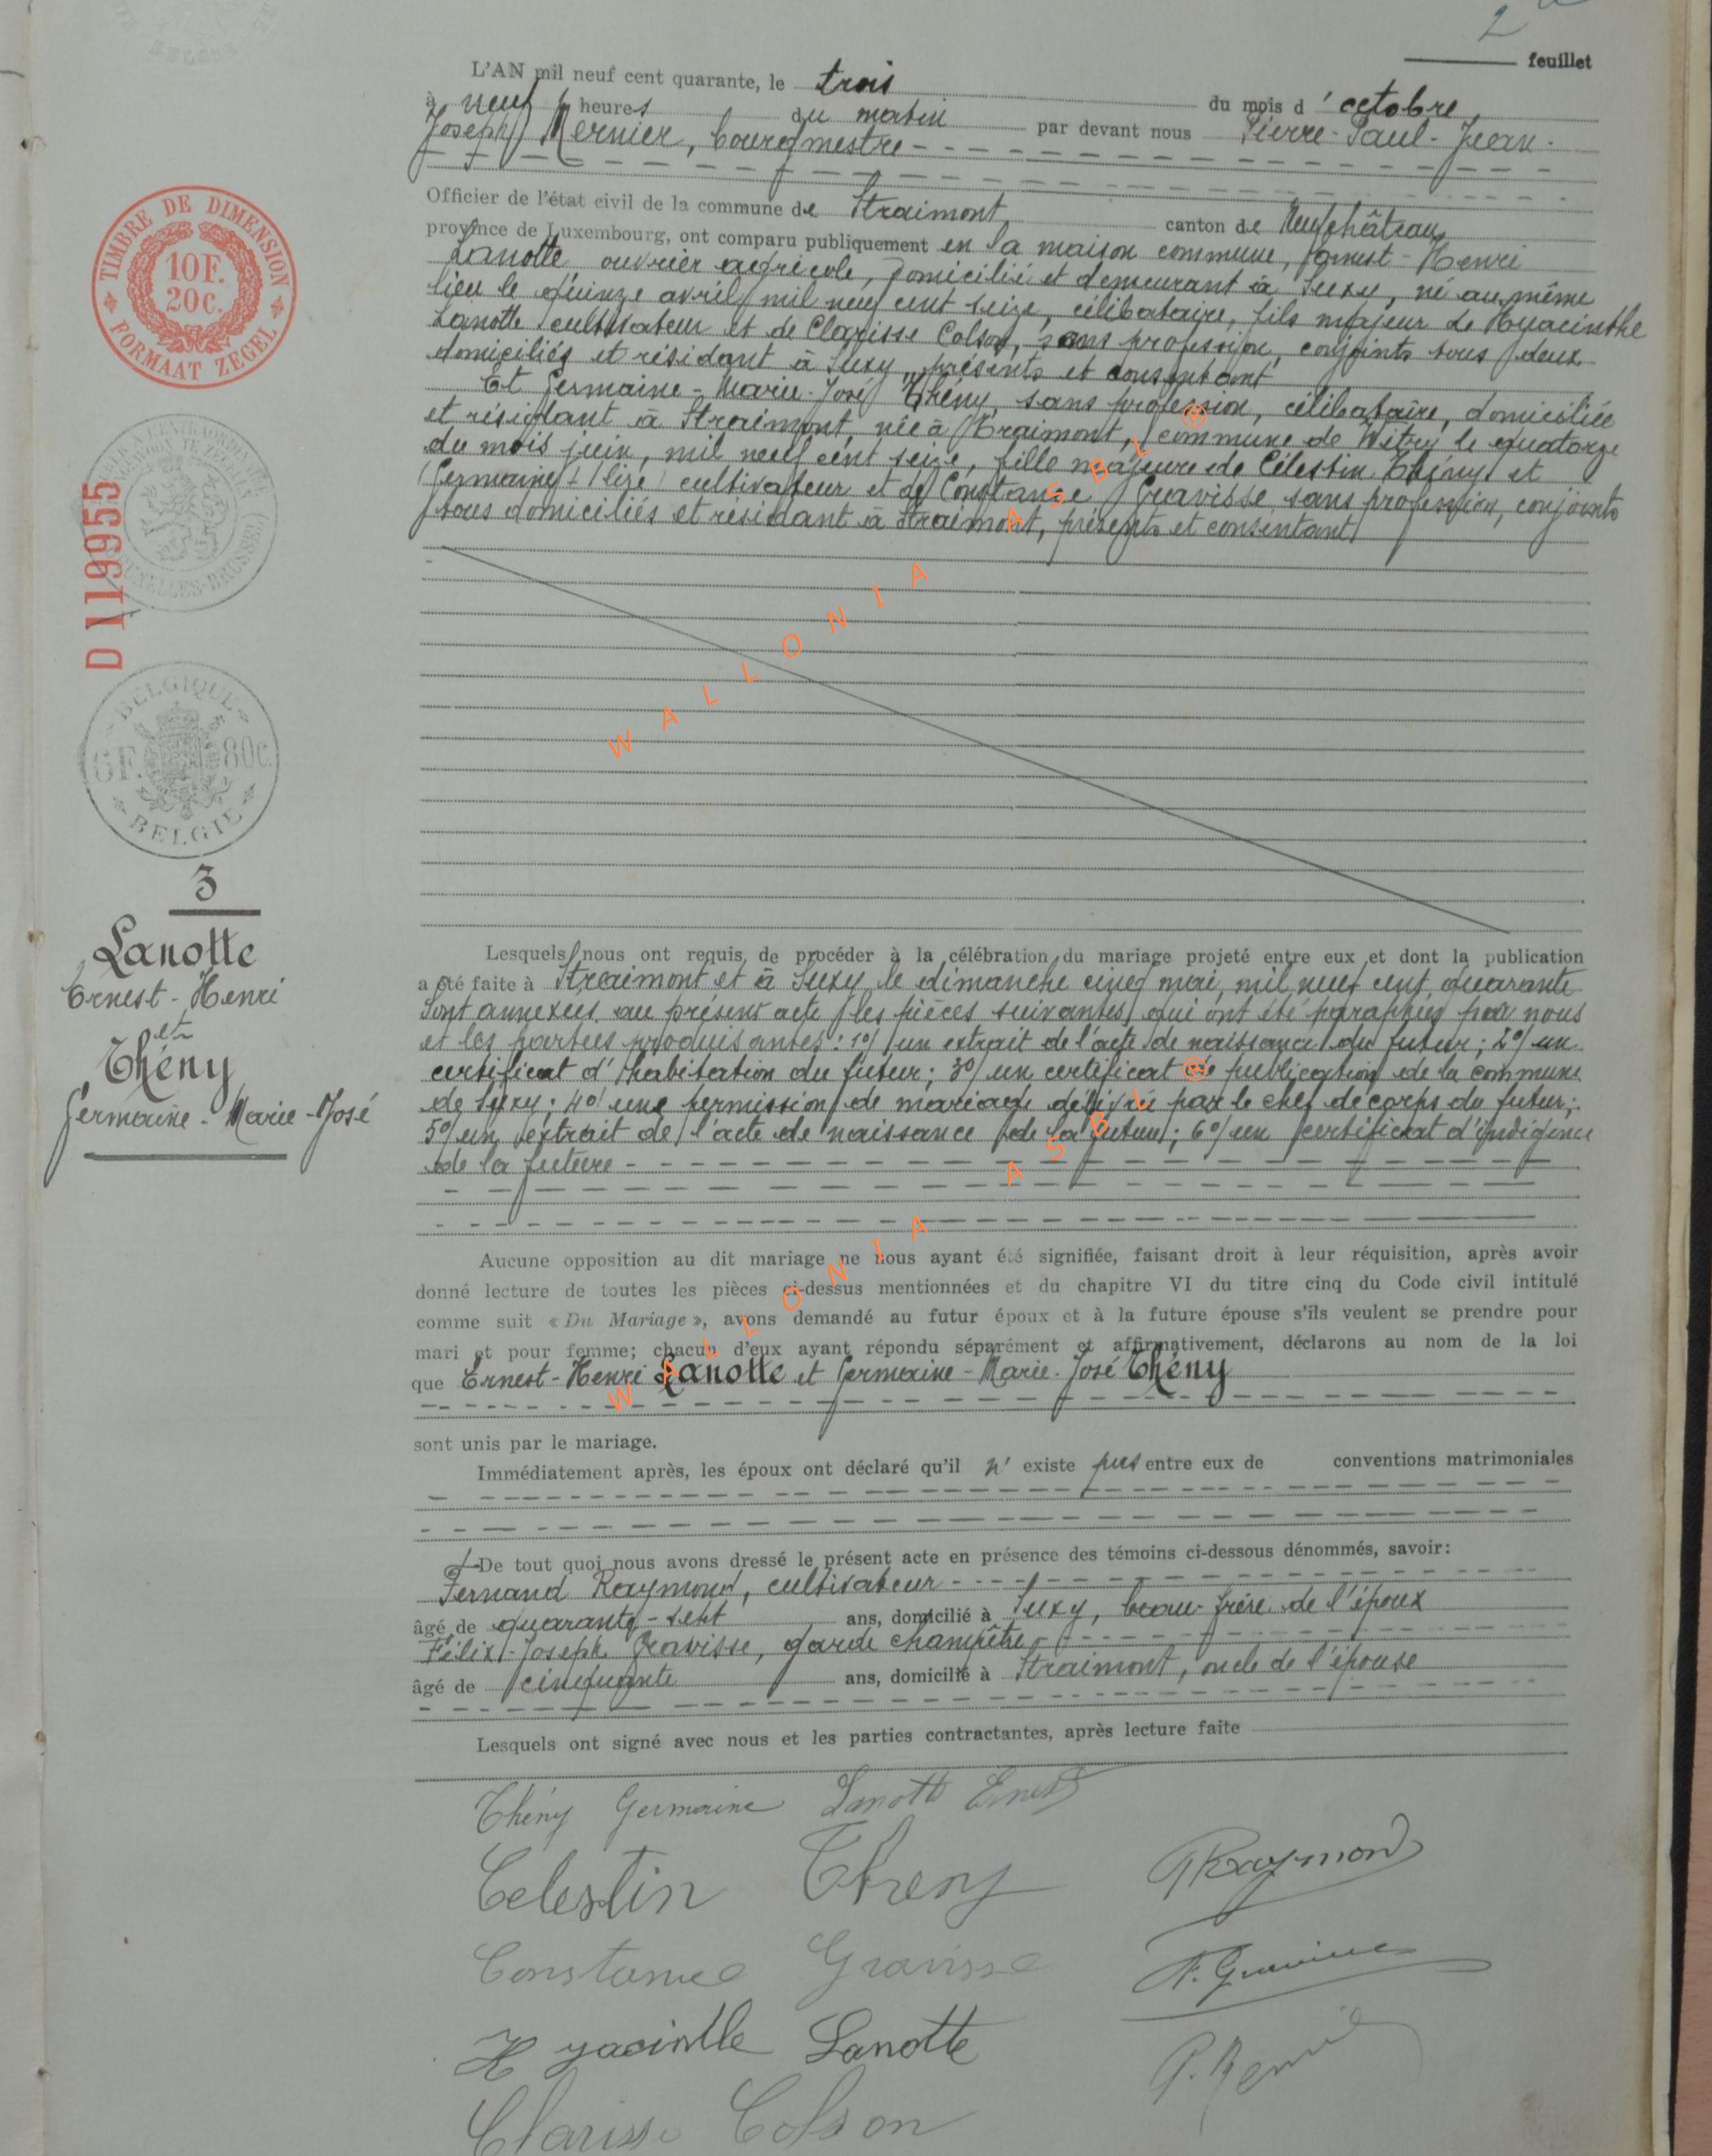 2
feuillet
L'AN mil neuf cent quarante, le trois du mois d'octobre
à neuf heures du matin par devant nous Pierre-Paul-Jean-
Joseph Mernier, bourgmestre
Officier de l'état civil de la commune de Straimont, canton de Neufchâteau,
province de Luxembourg, ont comparu publiquement en la maison commune, Ernest-Henri
Lanotte ouvrier agricole, domicilié et demeurant à Suxy, né au même
lieu le quinze avril mil neuf cent seize, célibataire, fils majeur de Hyacinthe
Lanotte cultivateur et de Clarisse Colson, sans profession, conjoints tous deux
domiciliés et résidant à Suxy, présents et consentant
Et Germaine-Marie-José Thény, sans profession, célibataire, domiciliée
et résidant à Straimont, née à Traimont, commune de Witry le quatorze
du mois juin, mil neuf cent seize, fille majeure de Célestin Thény et
cultivateur et de Constance Gravisse sans profession, conjoints
tous domiciliés et résidant à Straimont, présents et consentant
Lesquels nous ont requis de procéder à la célébration du mariage projeté entre eux et dont la publication
a été faite à Straimont et à Suxy le dimanche cinq mai, mil neuf cent quarante
Sont annexées au présent acte les pièces suivantes qui ont été paraphées par nous
et les parties produisantes: 1°/ un extrait de l'acte de naissance du futur; 2°/ un
certificat d'habitation du futur; 3°/ un certificat de publication de la commune
de Suxy; 4°/ une permission de mariage délivrée par le chef de corps du futur;
5°/ un extrait de l'acte de naissance de la future; 6°/ un certificat d'indigence
de la future
Aucune opposition au dit mariage ne nous ayant été signifiée, faisant droit à leur réquisition, après avoir
donné lecture de toutes les pièces ci-dessus mentionnées et du chapitre VI du titre cinq du Code civil intitulé
comme suit « Du Mariage », avons demandé au futur époux et à la future épouse s'ils veulent se prendre pour
mari et pour femme; chacun d'eux ayant répondu séparément et affirmativement, déclarons au nom de la loi
que Ernest-Henri Lanotte et Germaine-Marie-José Thény
sont unis par le mariage.
Immédiatement après, les époux ont déclaré qu'il n'existe pas entre eux de conventions matrimoniales
De tout quoi nous avons dressé le présent acte en présence des témoins ci-dessous dénommés, savoir:
Fernand Raymond, cultivateur
âgé de quarante-sept ans, domicilié à Suxy, beau-frère de l'époux
Félix-Joseph Gravisse, garde champêtre
âgé de cinquante ans, domicilié à Straimont, oncle de l'épouse
Lesquels ont signé avec nous et les parties contractantes, après lecture faite
Thény Germaine Lanotte Ernest
Celestin Thény
Raymond
Constance Gravisse
F. Gravisse
Hyacintthe Lanotte
Clarisse Colson
TIMBRE DE DIMENSION
10F.
20C.
FORMAAT ZEGEL
D 119955
BELGIQUE
6F. 80c.
BELGIE
3
Lanotte
Ernest-Henri
et
Thény
Germaine-Marie-José
WALLONIA ASBL ®
WALLONIA ASBL ®